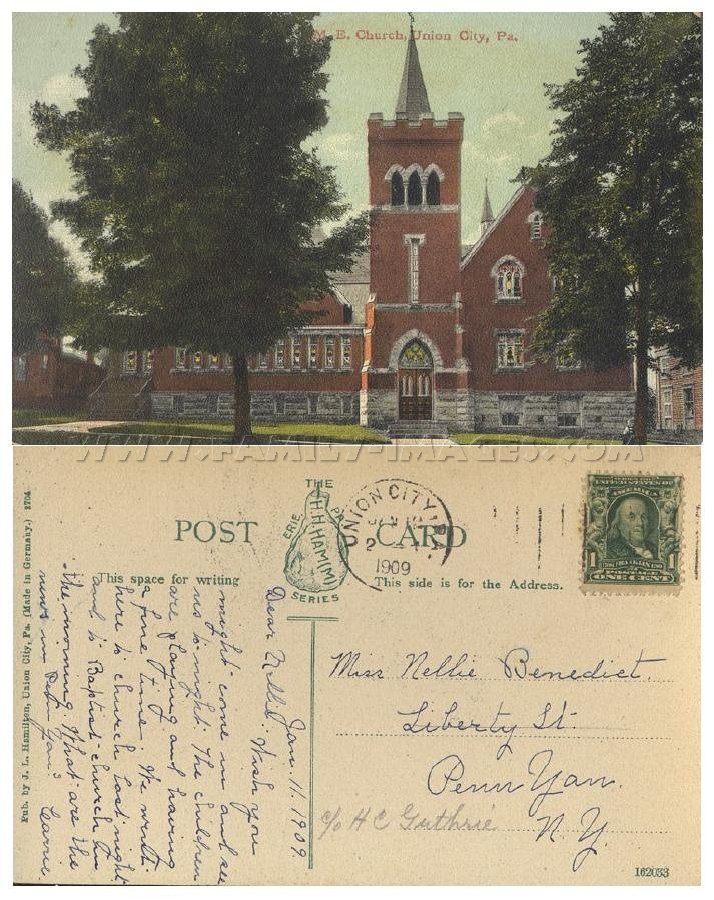 M. E. Church, Union City, Pa.
WWW.FAMILY-IMAGES.COM
THE
H.H.HAM(M)
ERIE PA
SERIES
POST CARD
This space for writing
This side is for the Address.
UNION CITY, PA.
JAN
2
1909
UNITED STATES OF
AMERICA
1 1
POSTAGE
ONE CENT
Pub. by J. L. Hamilton, Union City, Pa. (Made in Germany.) 2704
Jan. 11. 1909.
Dear Nellie. Wish you
might come in and see
us to-night. The children
are playing and having
a fine time. We went
here to church last night
and to Baptist church in
the morning. What are the
news in Penn Yan? Carrie.
Miss Nellie Benedict.
Liberty St.
Penn Yan.
N. Y.
c/o H C Guthrie
162033